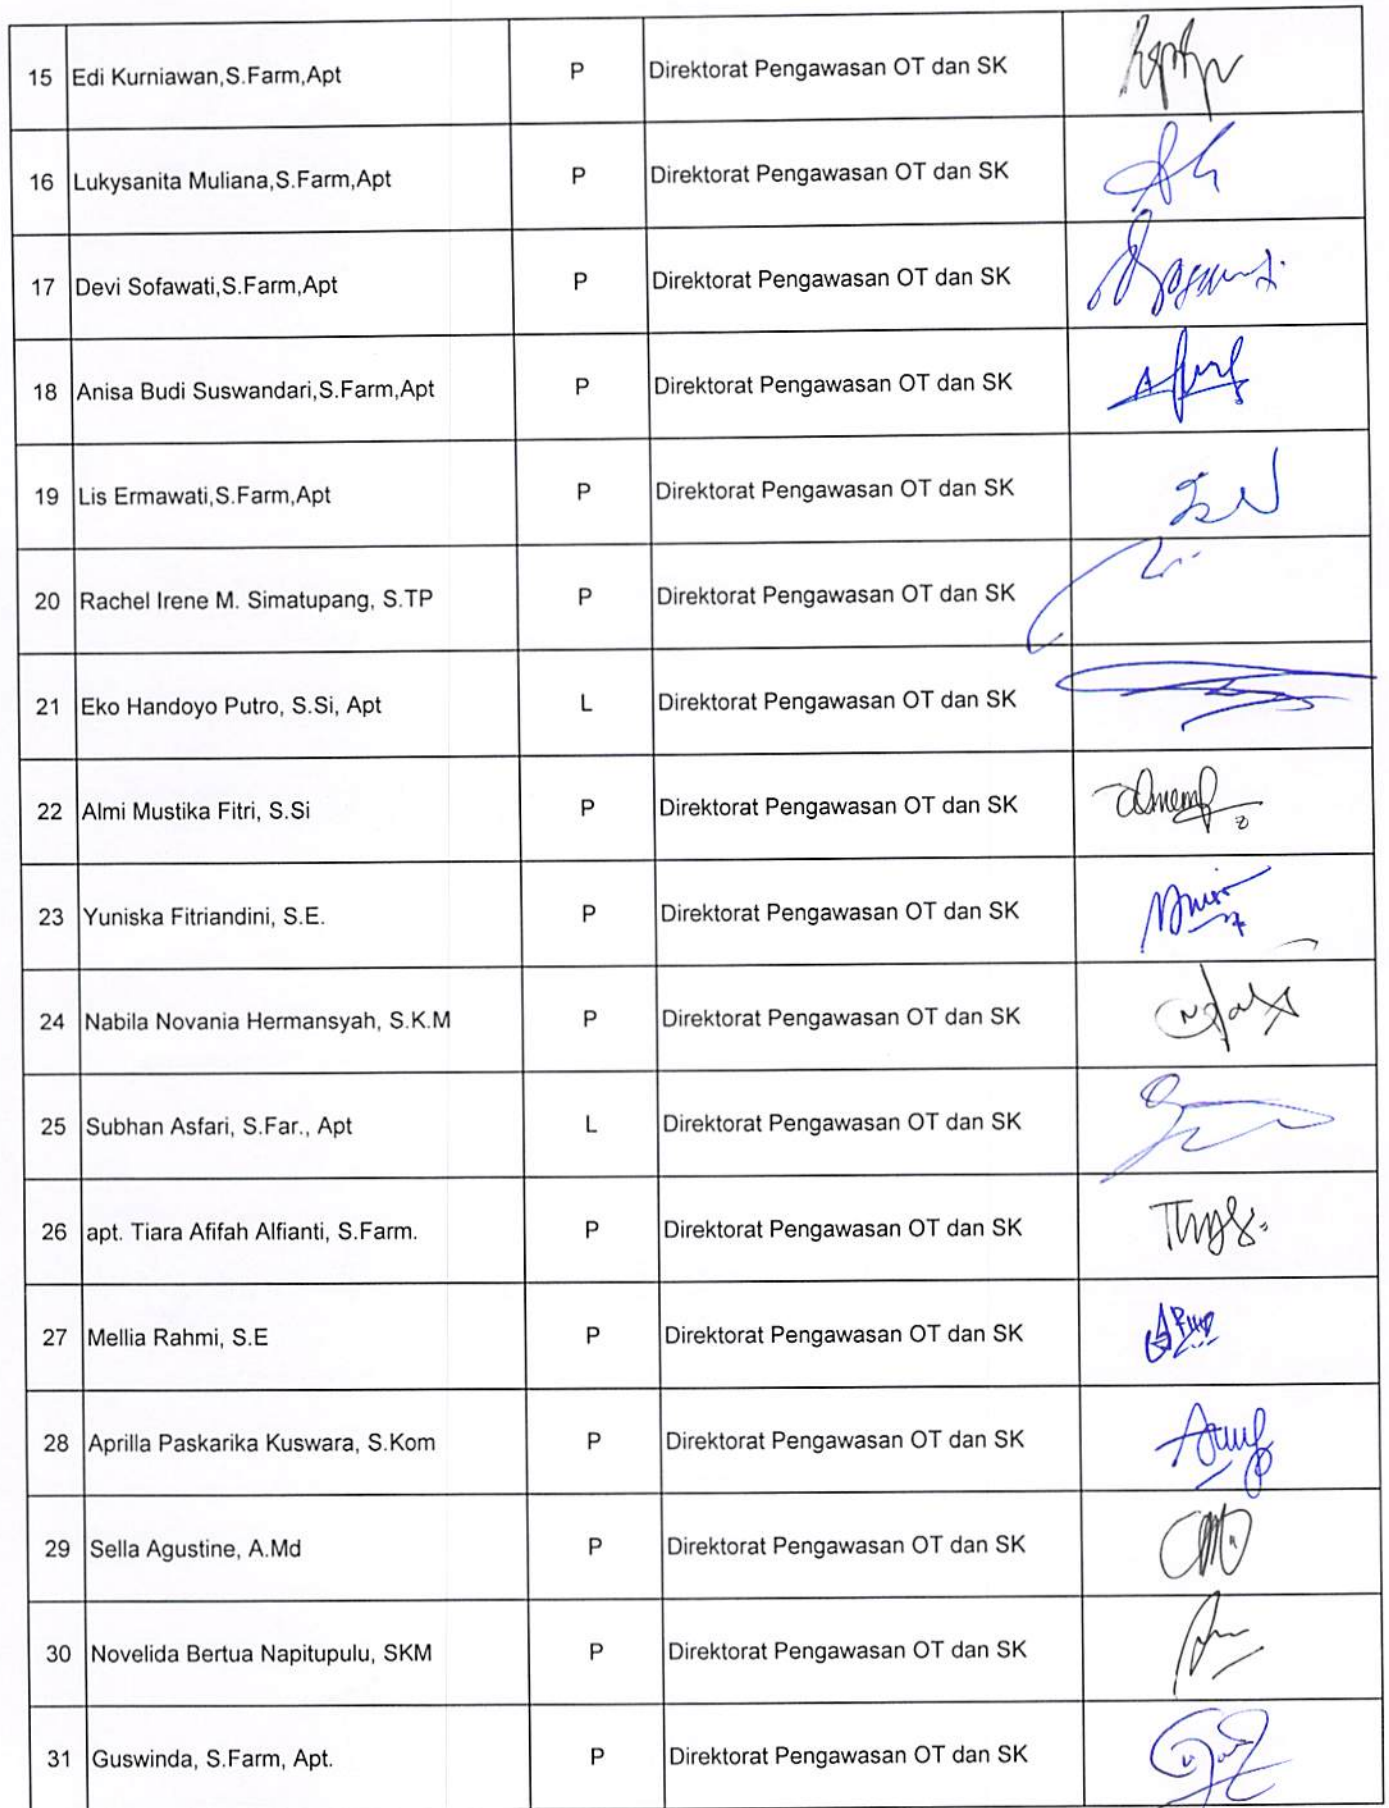 15 Edi Kurniawan,S.Farm,Apt P Direktorat Pengawasan OT dan SK
16 Lukysanita Muliana,S.Farm,Apt P Direktorat Pengawasan OT dan SK
17 Devi Sofawati,S.Farm,Apt P Direktorat Pengawasan OT dan SK
18 Anisa Budi Suswandari,S.Farm,Apt P Direktorat Pengawasan OT dan SK
19 Lis Ermawati,S.Farm,Apt P Direktorat Pengawasan OT dan SK
20 Rachel Irene M. Simatupang, S.TP P Direktorat Pengawasan OT dan SK
21 Eko Handoyo Putro, S.Si, Apt L Direktorat Pengawasan OT dan SK
22 Almi Mustika Fitri, S.Si P Direktorat Pengawasan OT dan SK
23 Yuniska Fitriandini, S.E. P Direktorat Pengawasan OT dan SK
24 Nabila Novania Hermansyah, S.K.M P Direktorat Pengawasan OT dan SK
25 Subhan Asfari, S.Far., Apt L Direktorat Pengawasan OT dan SK
26 apt. Tiara Afifah Alfianti, S.Farm. P Direktorat Pengawasan OT dan SK
27 Mellia Rahmi, S.E P Direktorat Pengawasan OT dan SK
28 Aprilla Paskarika Kuswara, S.Kom P Direktorat Pengawasan OT dan SK
29 Sella Agustine, A.Md P Direktorat Pengawasan OT dan SK
30 Novelida Bertua Napitupulu, SKM P Direktorat Pengawasan OT dan SK
31 Guswinda, S.Farm, Apt. P Direktorat Pengawasan OT dan SK